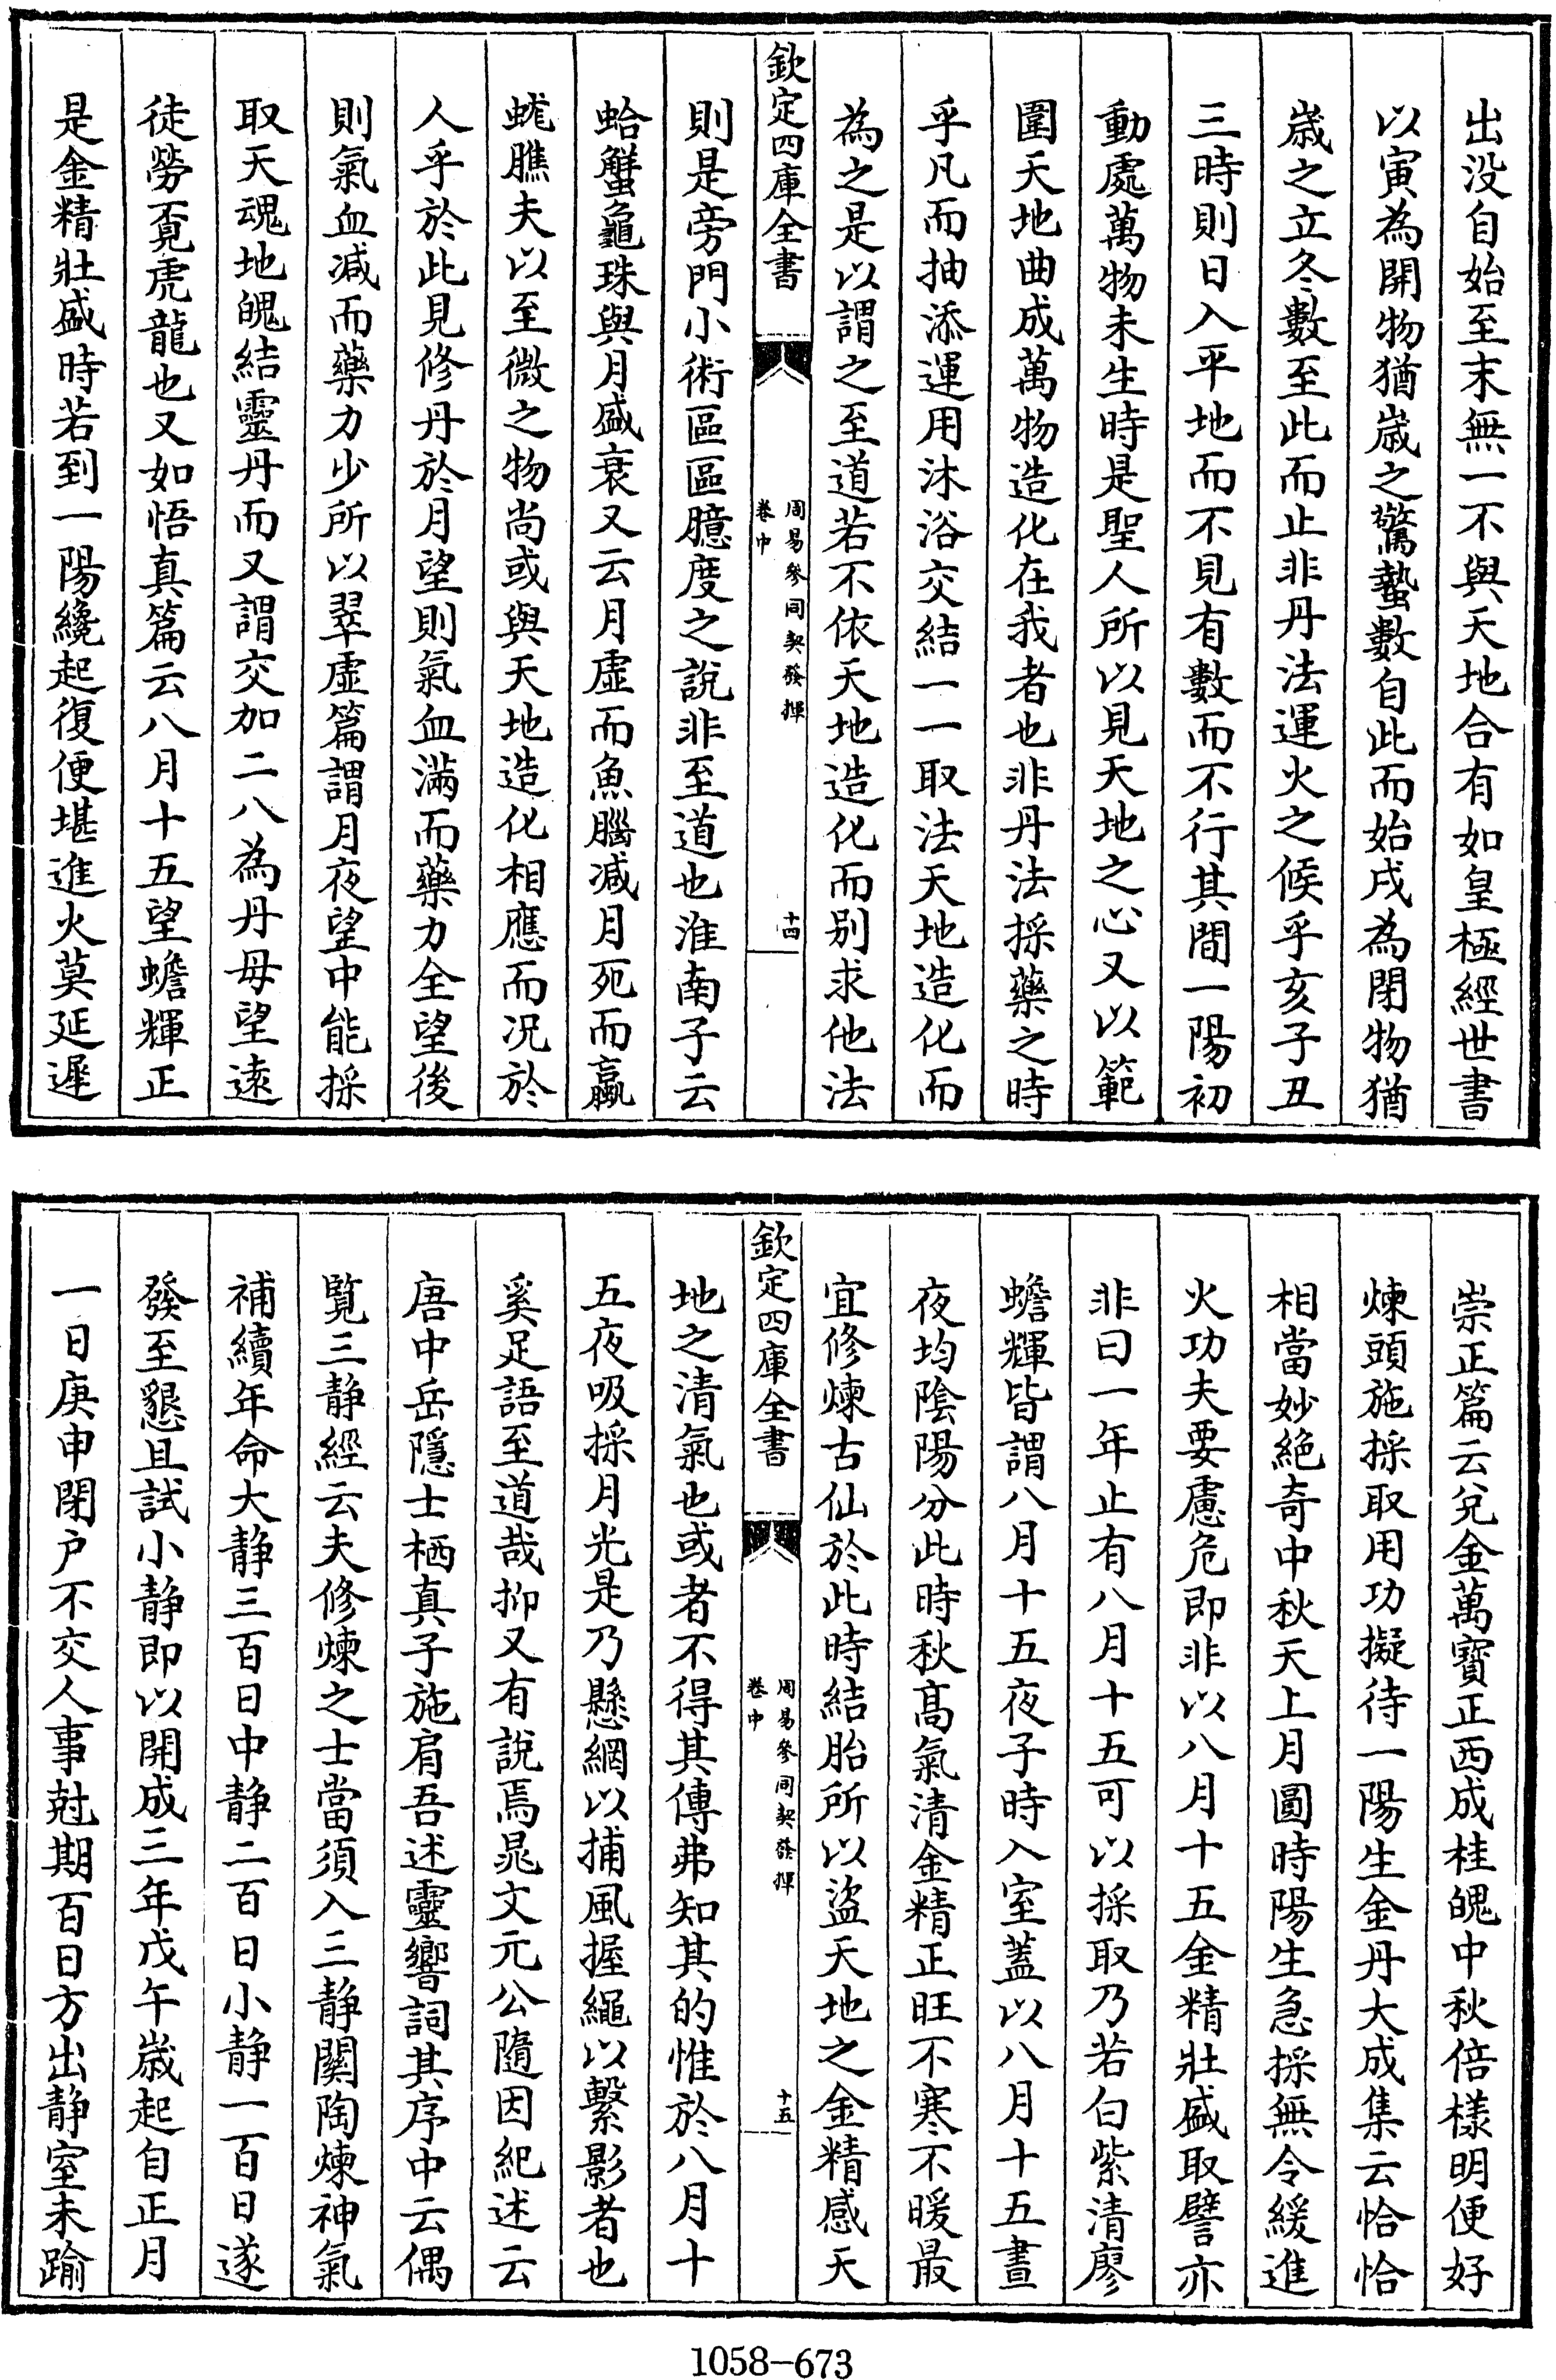 出没自始至末無一不與天地合有如皇極經世書
以寅為開物猶歲之驚蟄數自此而始戌為閉物猶
歲之立冬數至此而止非丹法運火之候乎亥子丑
三時則日入平地而不見有數而不行其間一陽初
動處萬物未生時是聖人所以見天地之心又以範
圍天地曲成萬物造化在我者也非丹法採藥之時
乎凡而抽添運用沐浴交結一一取法天地造化而
為之是以謂之至道若不依天地造化而别求他法
欽定四庫全書
周易參同契發揮
卷中
十四
則是旁門小術區區臆度之說非至道也淮南子云
蛤蟹龜珠與月盛衰又云月虛而魚腦減月死而蠃
蛖膲夫以至微之物尚或與天地造化相應而况於
人乎於此見修丹於月望則氣血滿而藥力全望後
則氣血減而藥力少所以翠虛篇謂月夜望中能採
取天魂地魄結靈丹而又謂交加二八為丹母望遠
徒勞覔虎龍也又如悟真篇云八月十五望蟾輝正
是金精壯盛時若到一陽纔起復便堪進火莫延遲
崇正篇云兌金萬寶正西成桂魄中秋倍樣明便好
煉頭施採取用功擬待一陽生金丹大成集云恰恰
相當妙絶奇中秋天上月圓時陽生急採無令緩進
火功夫要慮危即非以八月十五金精壯盛取譬亦
非曰一年止有八月十五可以採取乃若白紫清廖
蟾輝皆謂八月十五夜子時入室蓋以八月十五晝
夜均陰陽分此時秋高氣清金精正旺不寒不暖最
宜修煉古仙於此時結胎所以盜天地之金精感天
欽定四庫全書
周易參同契發揮
卷中
十五
地之清氣也或者不得其傳弗知其的惟於八月十
五夜吸採月光是乃懸網以捕風握繩以繫影者也
奚足語至道哉抑又有說焉晁文元公隨因紀述云
唐中岳隱士栖真子施肩吾述靈響詞其序中云偶
覧三静經云夫修煉之士當須入三静關陶煉神氣
補續年命大静三百日中静二百日小静一百日遂
發至懇且試小静即以開成三年戊午歲起自正月
一日庚申閉户不交人事尅期百日方出静室未踰
1058-673